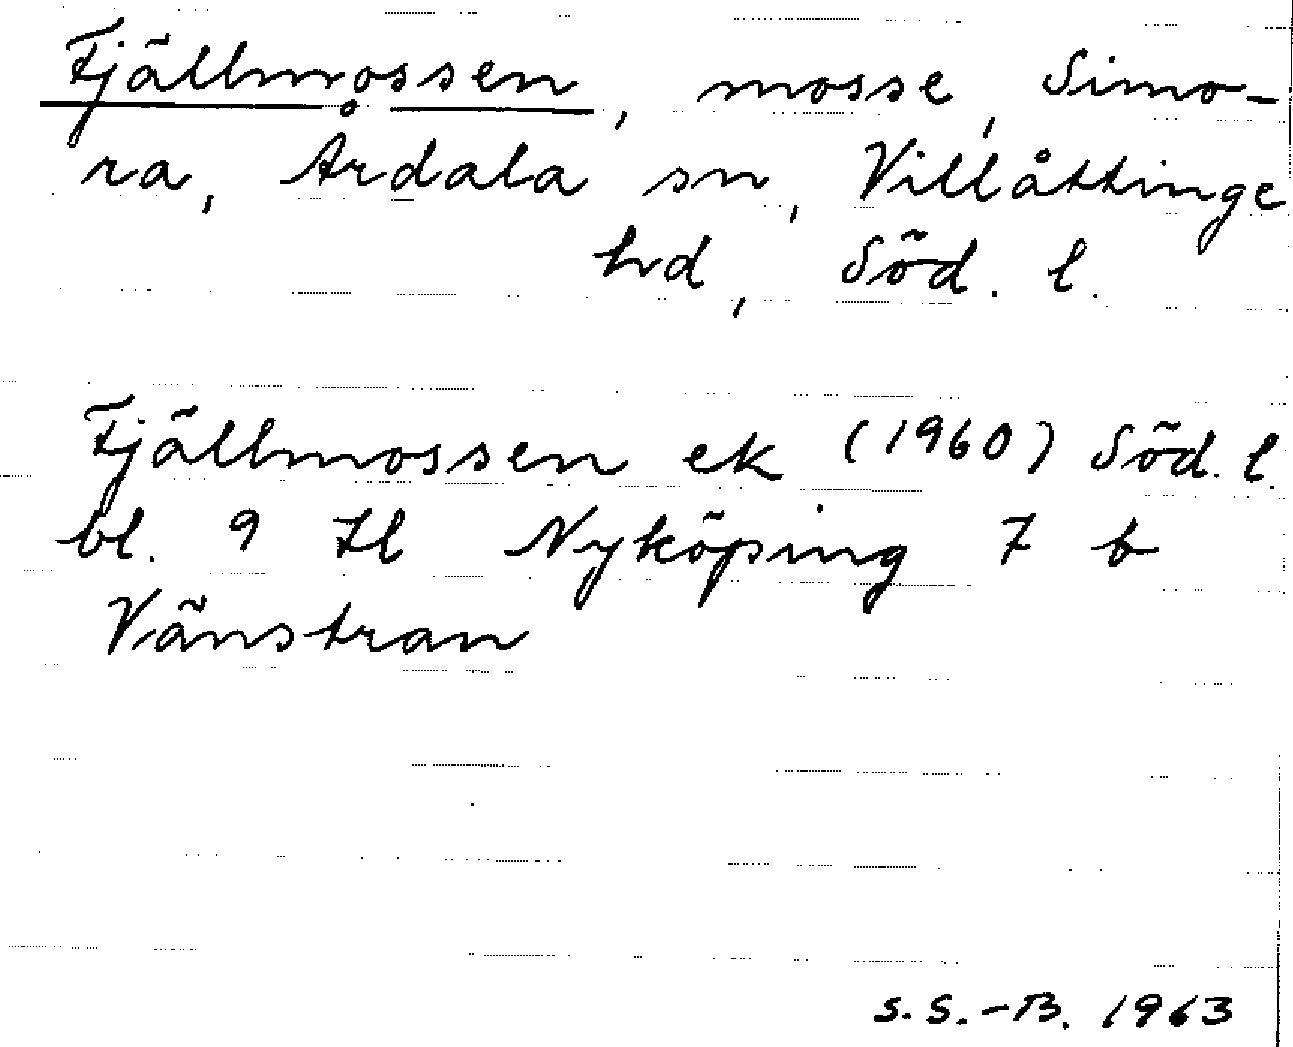 Fjällmossen, mosse, Simo-
ra, Årdala sn, Villåttinge
hd, Söd. l.
Fjällmossen ek (1960) Söd. l.
bl. 9 Nyköping 7 b
Vänstran
S.S.-B. 1963